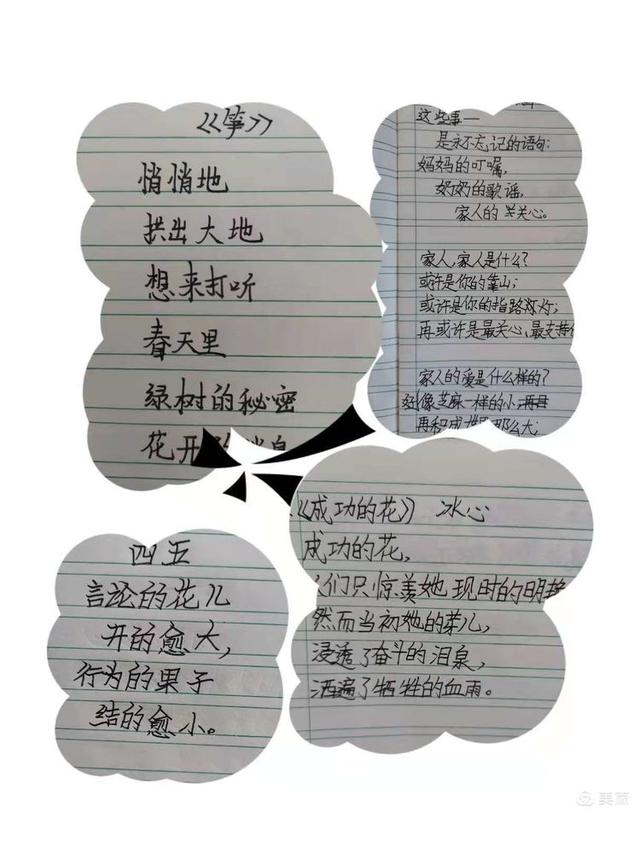 《笋》
悄悄地
拱出大地
想来打听
春天里
绿树的秘密
花开
这些事一
是永不忘记的语句:
妈妈的叮嘱,
奶奶的歌谣,
家人的关心。
家人,家人是什么?
或许是你的靠山;
或许是你的指路灯;
再或许是最关心、最支持
家人的爱是什么样的?
像芝麻一样的小
再和成 那么大;
四五
言论的花儿
开的愈大,
行为的果子
结的愈小。
《成功的花》 冰心
成功的花,
人们只惊羡她现时的明艳
然而当初她的芽儿,
浸透了奋斗的泪泉,
洒遍了牺牲的血雨。
美篇